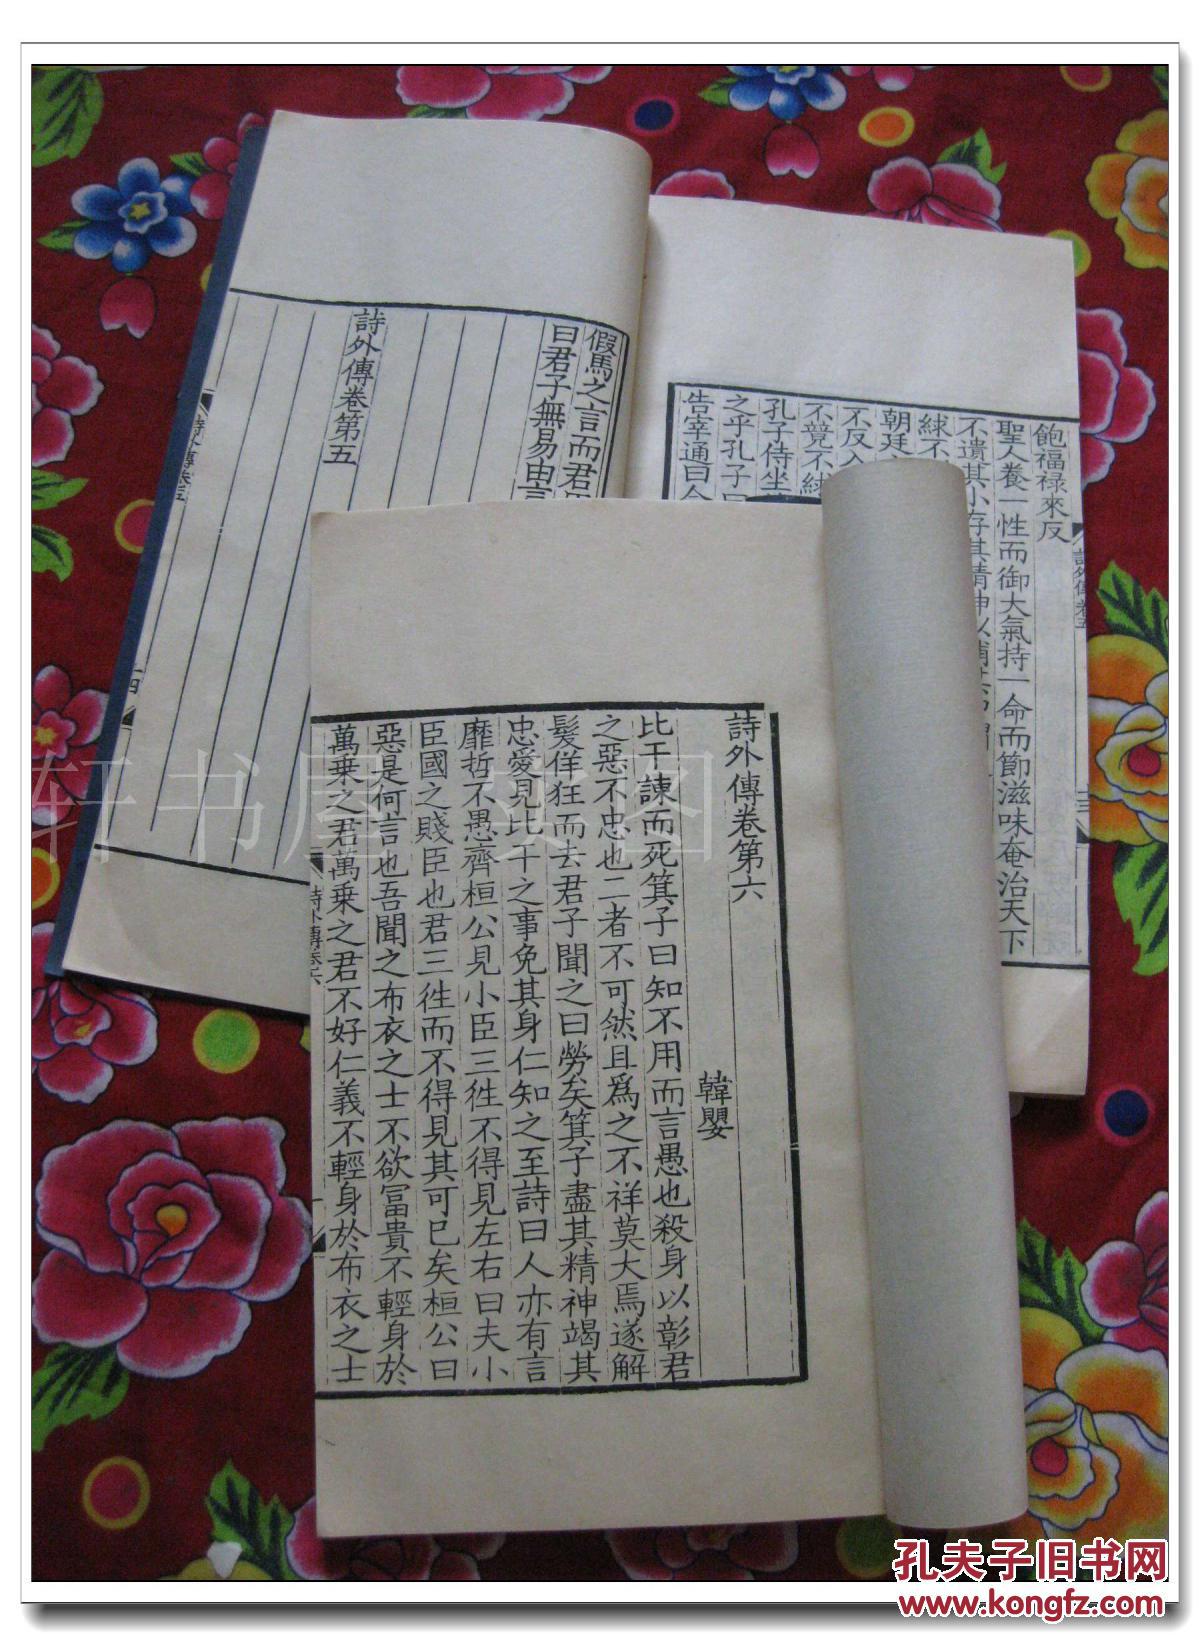 詩外傳卷第六
韓嬰
比干諫而死箕子曰知不用而言愚也殺身以彰君
之惡不忠也二者不可然且爲之不祥莫大焉遂解
髮佯狂而去君子聞之曰勞矣箕子盡其精神竭其
忠愛見比干之事免其身仁知之至詩曰人亦有言
靡哲不愚齊桓公見小臣三徃不得見左右曰夫小
臣國之賤臣也君三徃而不得見其可已矣桓公曰
惡是何言也吾聞之布衣之士不欲冨貴不輕身於
萬乗之君萬乗之君不好仁義不輕身於布衣之士
詩外傳卷六
飽福禄來反
聖人養一性而御大氣持一命而節滋味奄治天下
不遺其小存其精神以補其
絿不
朝廷
不反入
不競不絿
孔子侍坐
之乎孔子曰
告宰通曰今
詩外傳卷五
假馬之言而君
曰君子無易由言
詩外傳卷第五
詩外傳卷五
十四
轩书屋 实图
孔夫子旧书网
www.kongfz.com